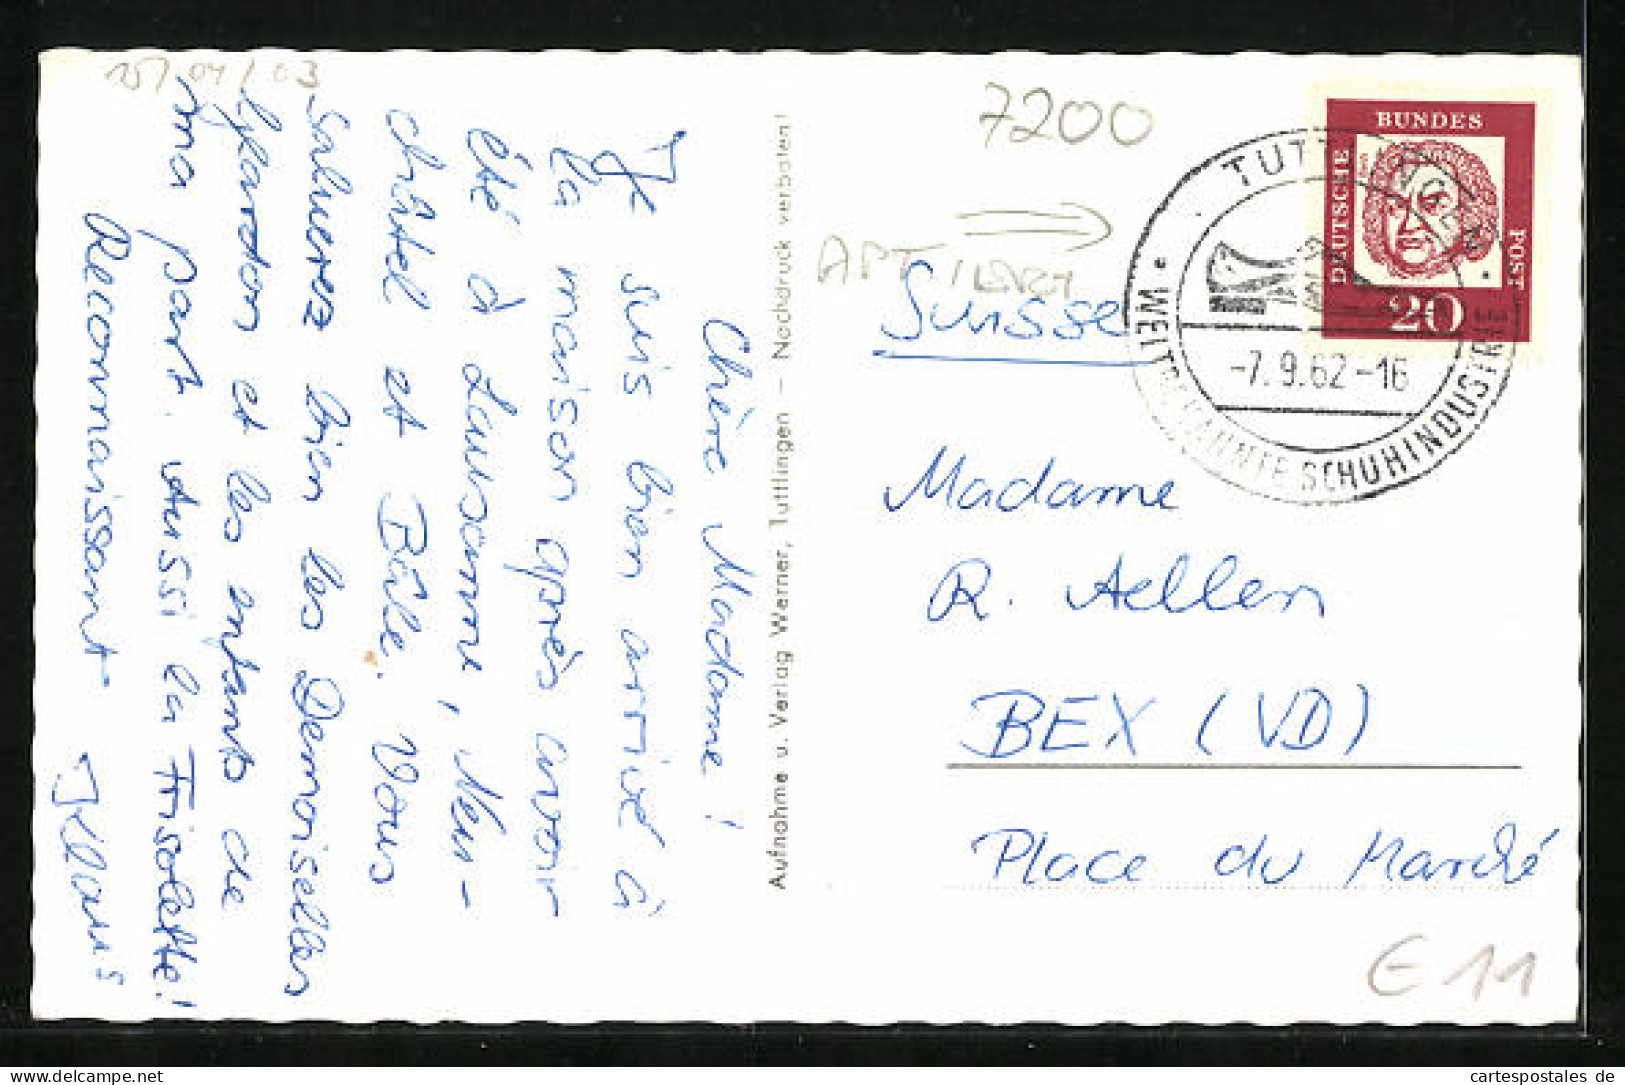 15/04/03
Chère Madame!
Je suis bien arrivé à
la maison après avoir
été à Lausanne, Neu-
châtel et Bâle. Vous
saluerez bien les Demoiselles
et les enfants de
ma part. Aussi la Frisolette!
Reconnaissant
Aufnahme u. Verlag Werner, Tuttlingen – Nachdruck verboten!
7200
Suisse
DEUTSCHE BUNDES POST
20
TUTTLINGEN
-7.9.62-16
WELTBEKANNTE SCHUHINDUSTRIE
Madame
R. Aellen
BEX (VD)
Place du Marché
E 11
cartespostales de